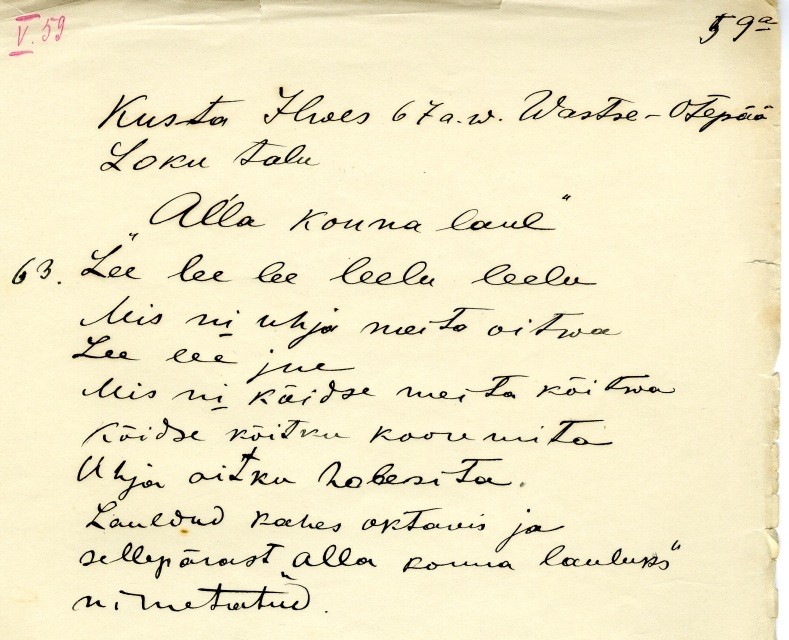 V. 59
59a
Kusta Ilwes 67 a.w. Wastse-Otepää
Loku talu
"Alla konna laul"
63. Lee lee lee leelu leelu
Mis ni uhja meita oitwa
Lee lee jne
Mis ni köidse meita köitwa
Köidse köitku koormita
Uhja oitku hobesita.
Lauldud kahes oktavis ja
sellepärast "alla konna lauluks"
nimetatud.